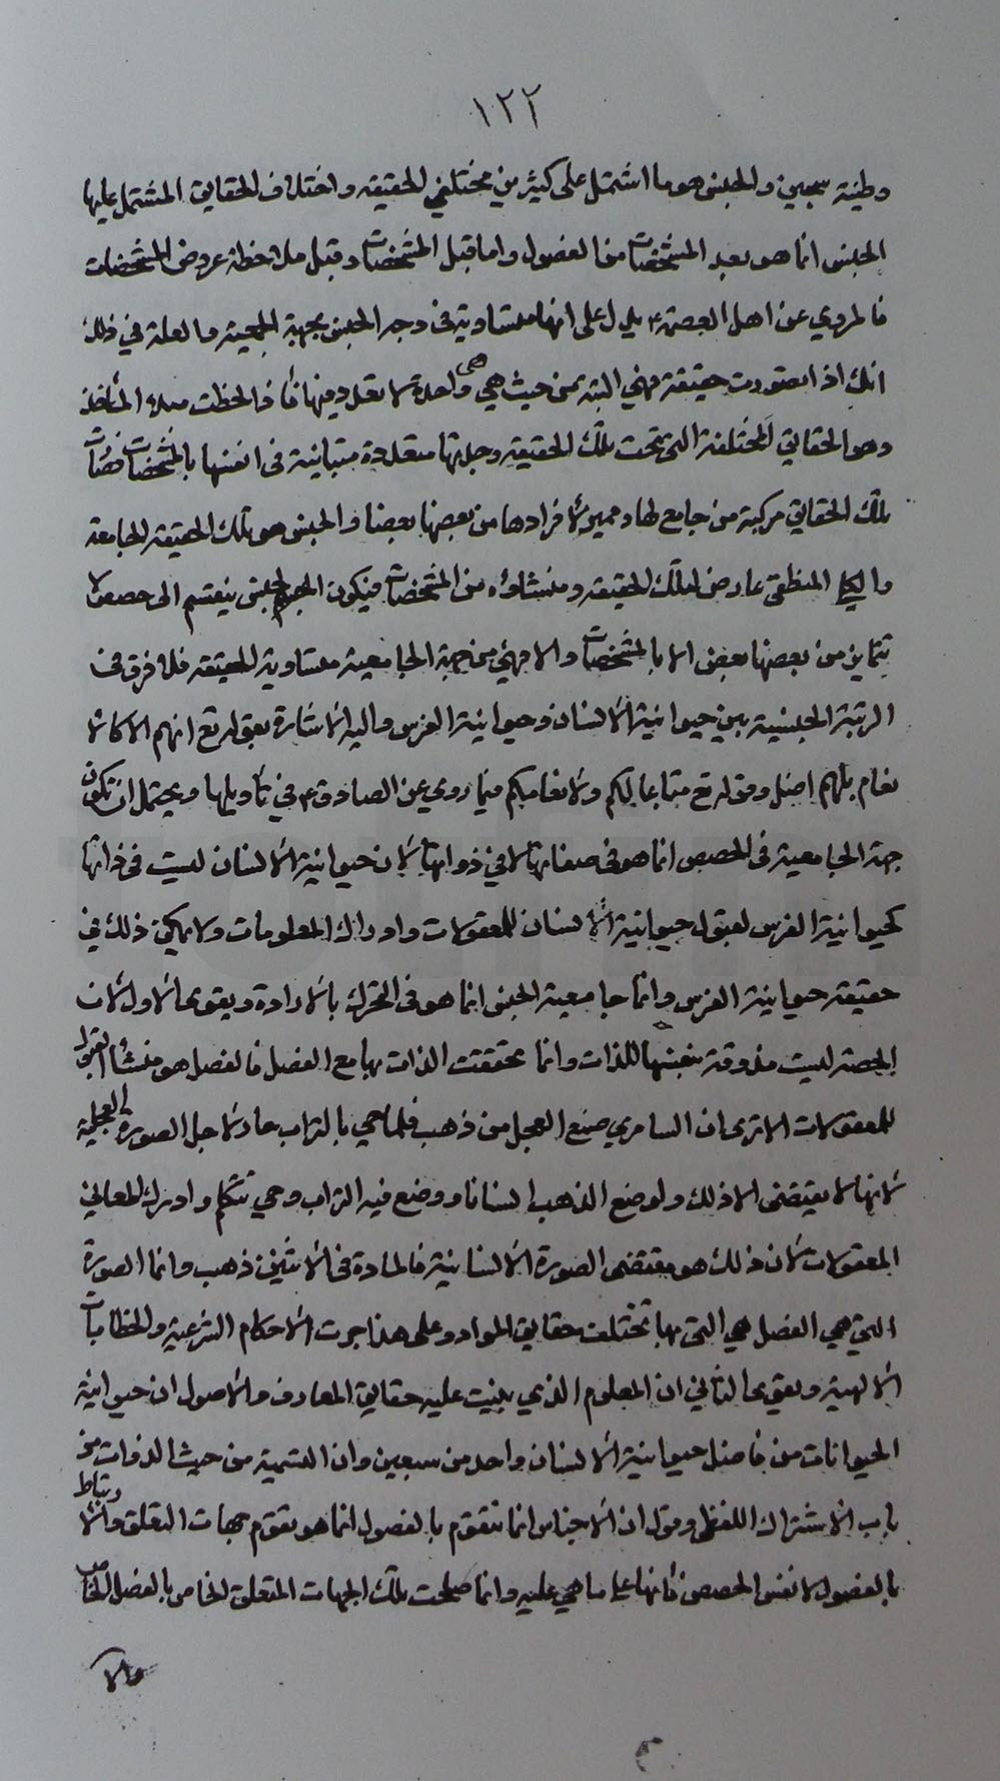 ١٢٢
وطينة سجين والجنس هو ما اشتمل على كثيرين مختلفي الحقيقه واختلاف الحقايق المشتمل عليها
الجنس انما هو بعد المشخصات من الفصول واما قبل المشخصات وقبل ملاحظة عروض المشخصات
فالمروي عن اهل العصمة ع يدل على انها متساوية في وجه الجنس بجهة الجمعية والعلة في ذلك
انك اذا تصورت حقيقة فهي البتة من حيث هي هي واحدة لا تعدد فيها فاذا لحظت مبدء المأخذ
وهو الحقائق المختلفة التي تحت تلك الحقيقه وجدتها متعددة متباينة في انفسها بالمشخصات فصارت
تلك الحقائق مركبة من جامع لها ومميز لافرادها من بعضها بعضا والجنس هو تلك الحقيقه الجامعة
والكلي المنطقي عارض لتلك الحقيقه ومنشاؤه من المشخصات فيكون الجنس ينقسم الى حصص لا
يتمايز من بعضها بعض الا بالمشخصات والا فهي من جهة الجامعية متساوية الحقيقه فلا فرق في
الرتبة الجنسية بين حيوانية الانسان وحيوانية الفرس واليه الاشارة بقوله تع ان هم الا كالا
نعام بل هم اضل وقوله تع متاعا لكم ولانعامكم فيما روي عن الصادق ع في تأويلها ويحتمل ان تكون
جهة الجامعية في الحصص انما هو في صفاتها لا في ذواتها لان حيوانية الانسان ليست في ذاتها
كحيوانية الفرس لقبول حيوانية الانسان للمعقولات وادراك المعلومات ولا يمكن ذلك في
حقيقة حيوانية الفرس وانما جامعية الجنس انما هو في التحرك بالارادة ويقوى الاول لان
الحصة ليست مذوقة بنفسها للذات وانما تحققت الذات بها مع الفصل فالفصل هو منشأ القبول
للمعقولات الا ترى ان السامري صنع العجل من ذهب فلما حيي بالتراب خار لاجل الصورة العجلية
لانها لا يقتضى الا ذلك ولو صنع الذهب انسانا ووضع فيه التراب وحي تكلم وادرك المعاني
المعقولات لان ذلك هو مقتضى الصورة الانسانية فالمادة في الاثنين ذهب وانما الصورة
التي هي الفصل هي التي بها تختلف حقايق المواد وعلى هذا جرت الاحكام الشرعية والخطابات
الالهية ويقوى الثاني ان المعلوم الذي بنيت عليه حقائق المعارف والاصول ان حيوانية
الحيوانات من فاضل حيوانية الانسان واحد من سبعين وان التسمية من حيث الذوات من
باب الاشتراك اللفظي وقول ان الاجناس انما تتقوم بالفصول انما هو تقوم جهات التعلق والارتباط
بالفصول لا نفس الحصص فانها على ما هي عليه وانما صلحت تلك الجهات المتعلق الخاص بالفصل الخاص
والا